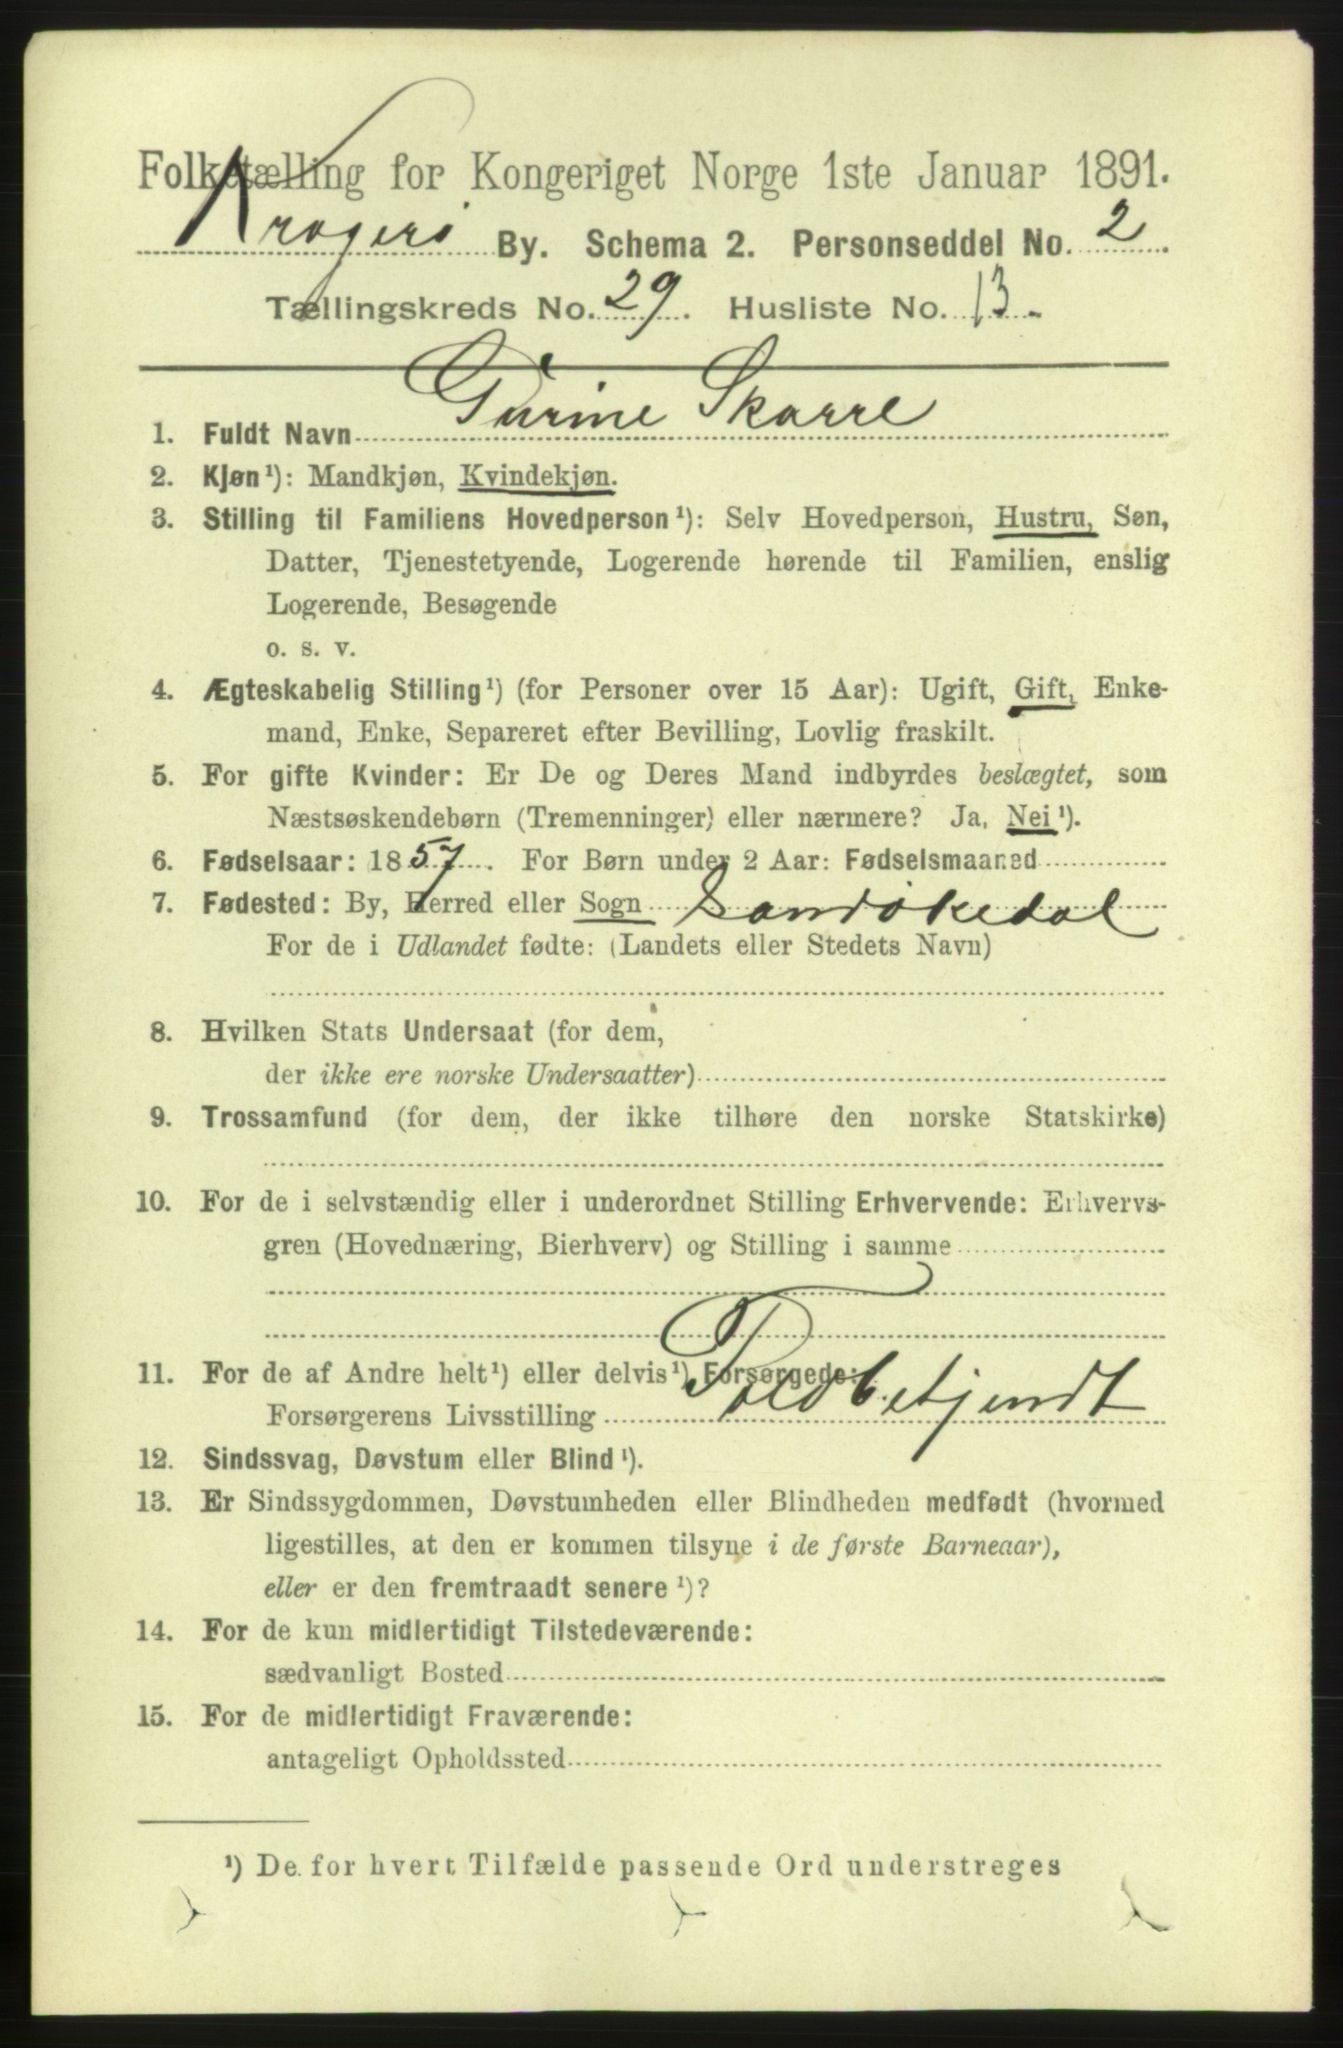 Folketælling for Kongeriget Norge 1ste Januar 1891.
Kragerø By. Schema 2. Personseddel No. 2
Tællingskreds No. 29. Husliste No. 13.
1. Fuldt Navn Gurine Skarre
2. Kjøn¹): Mandkjøn, Kvindekjøn.
3. Stilling til Familiens Hovedperson¹): Selv Hovedperson, Hustru, Søn,
Datter, Tjenestetyende, Logerende hørende til Familien, enslig
Logerende, Besøgende
o. s. v.
4. Ægteskabelig Stilling¹) (for Personer over 15 Aar): Ugift, Gift, Enke-
mand, Enke, Separeret efter Bevilling, Lovlig fraskilt.
5. For gifte Kvinder: Er De og Deres Mand indbyrdes beslægtet, som
Næstsøskendebørn (Tremenninger) eller nærmere? Ja, Nei¹).
6. Fødselsaar: 1857. For Børn under 2 Aar: Fødselsmaaned
7. Fødested: By, Herred eller Sogn Sandøkedal
For de i Udlandet fødte: (Landets eller Stedets Navn)
8. Hvilken Stats Undersaat (for dem,
der ikke ere norske Undersaatter)
9. Trossamfund (for dem, der ikke tilhøre den norske Statskirke)
10. For de i selvstændig eller i underordnet Stilling Erhvervende: Erhvervs-
gren (Hovednæring, Bierhverv) og Stilling i samme
11. For de af Andre helt¹) eller delvis¹) Forsørgede:
Forsørgerens Livsstilling Toldbetjendt
12. Sindssvag, Døvstum eller Blind¹).
13. Er Sindssygdommen, Døvstumheden eller Blindheden medfødt (hvormed
ligestilles, at den er kommen tilsyne i de første Barneaar),
eller er den fremtraadt senere¹)?
14. For de kun midlertidigt Tilstedeværende:
sædvanligt Bosted
15. For de midlertidigt Fraværende:
antageligt Opholdssted
¹) De for hvert Tilfælde passende Ord understreges